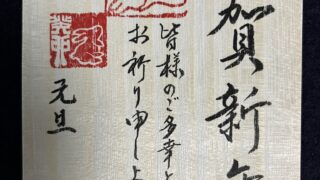 賀新
皆様のご多幸と
お祈り申し上
元旦